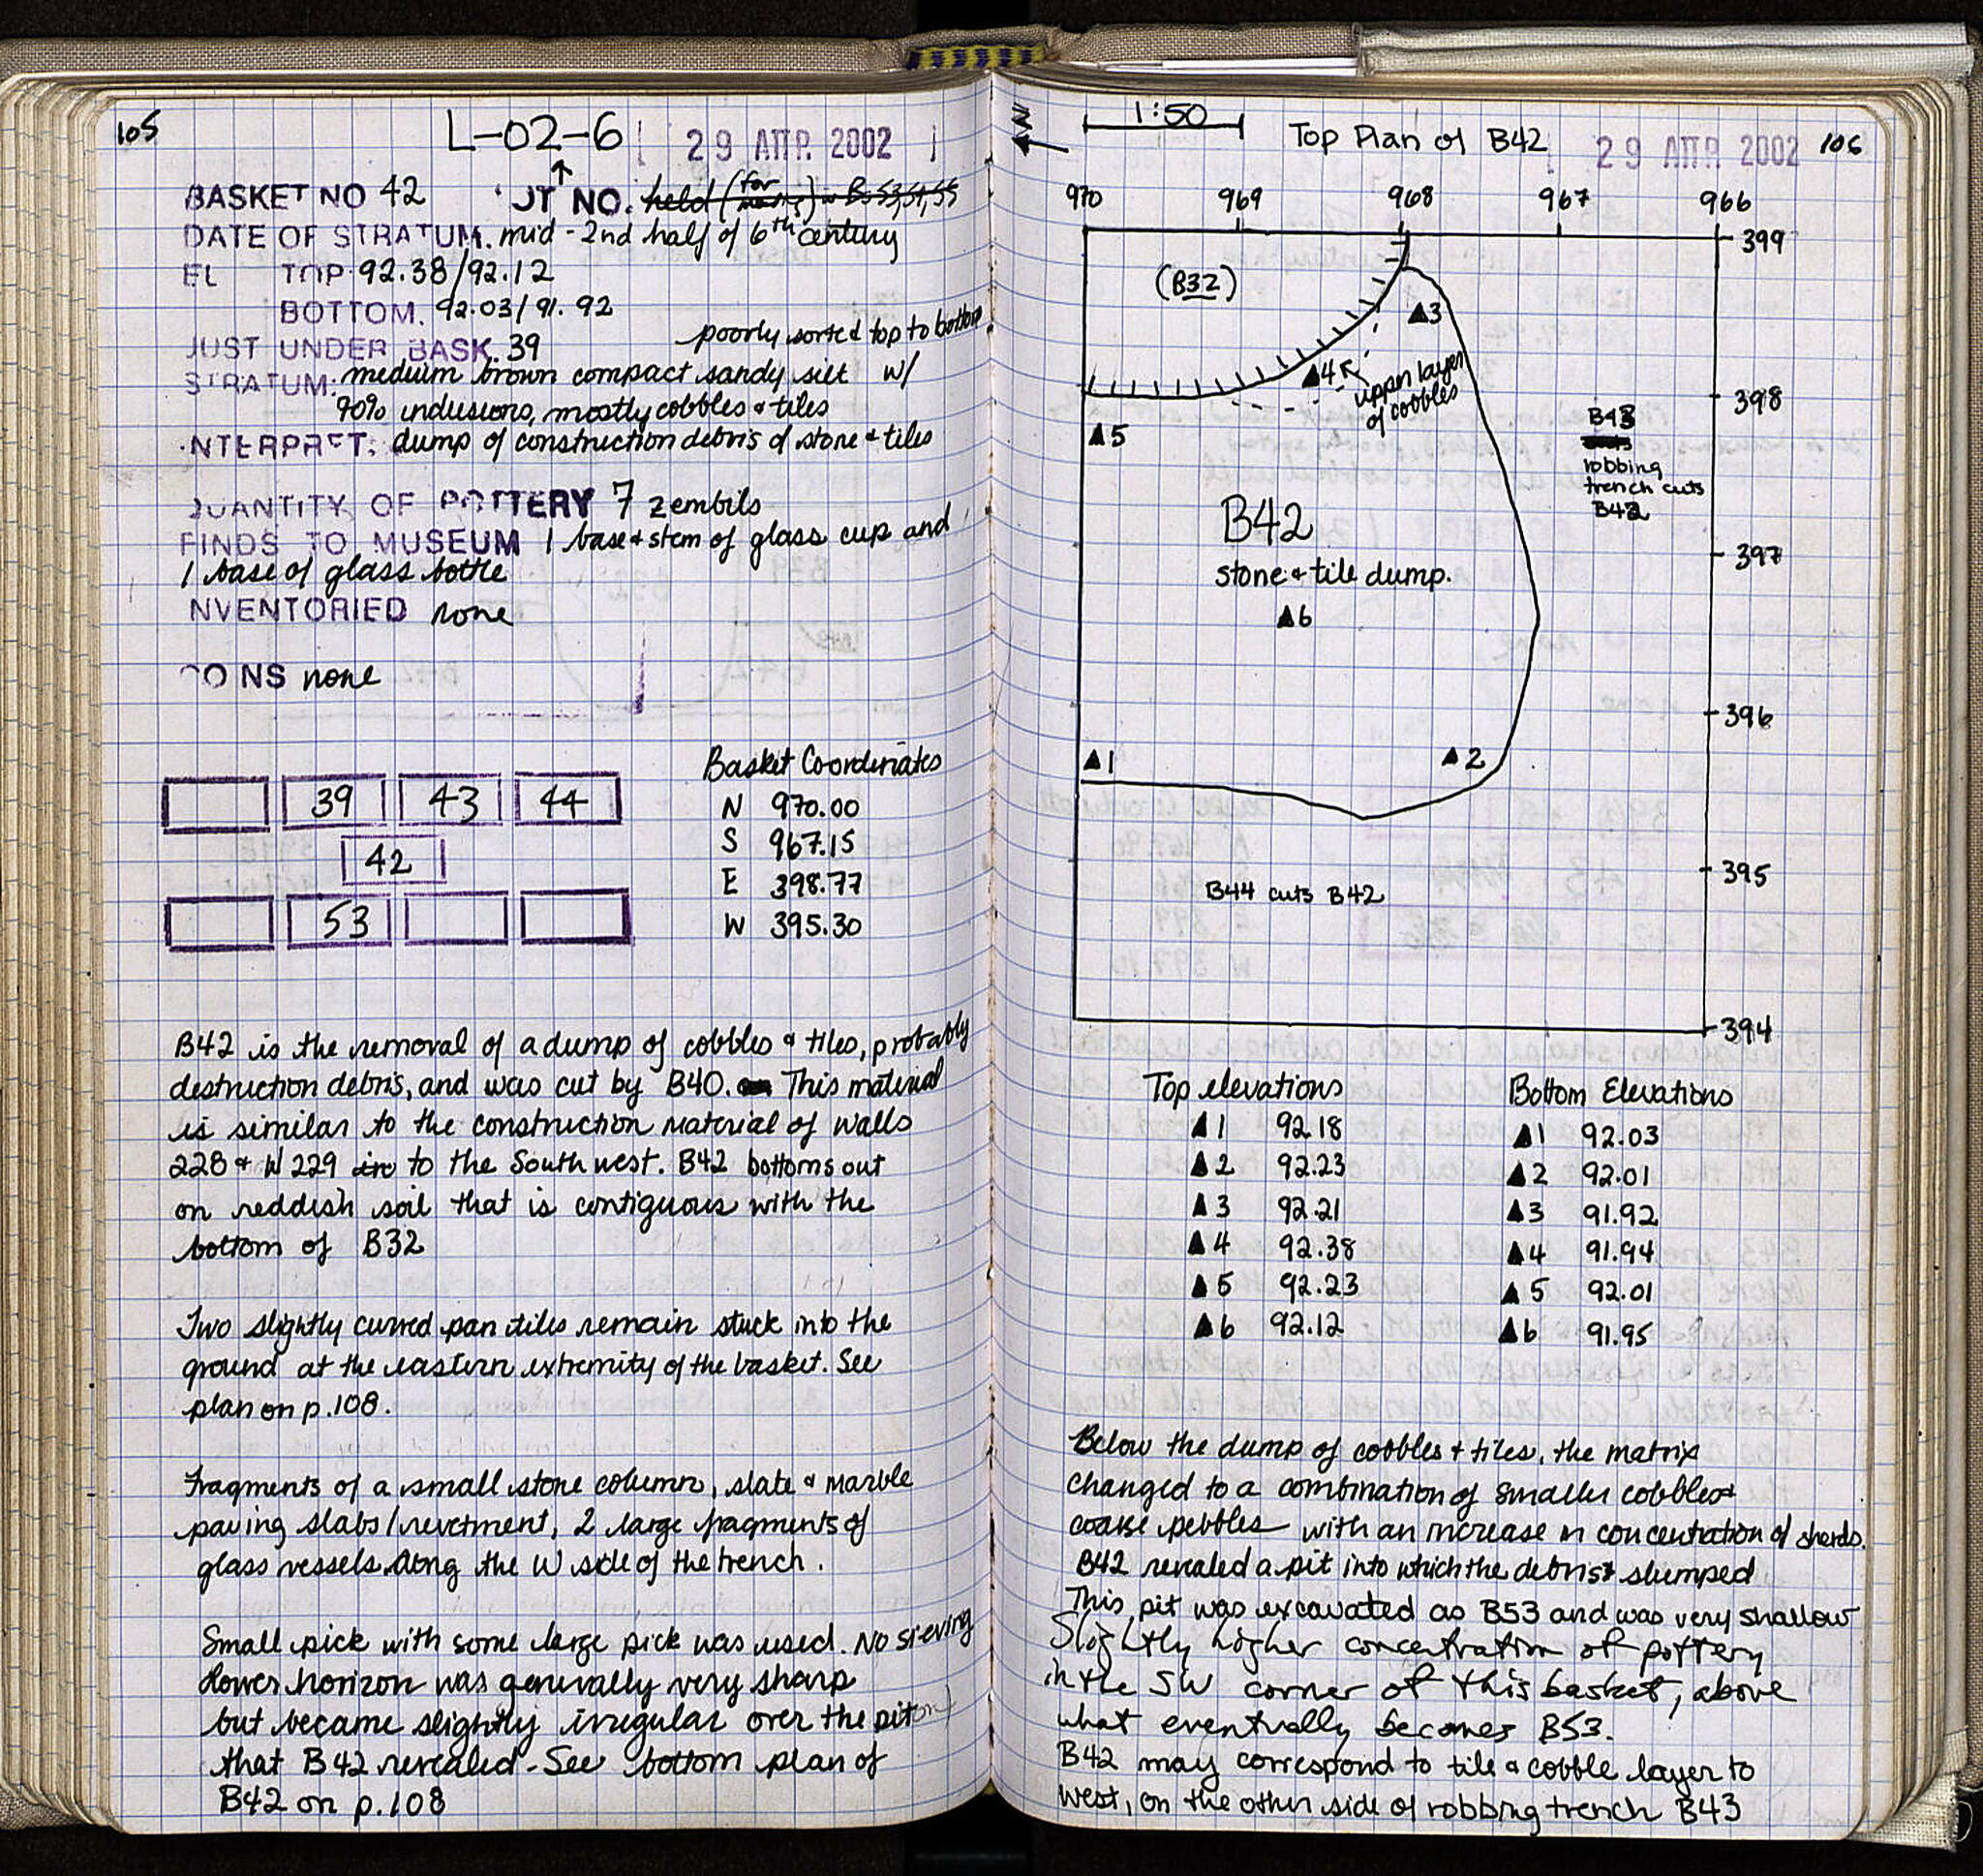 105
L-02-6
29 ΑΠΡ. 2002
BASKET NO 42
NO. held (for) B53,54,55
DATE OF STRATUM. mid-2nd half of 6th century
EL TOP 92.38/92.12
BOTTOM. 92.03/91.92
JUST UNDER BASK. 39
poorly sorted top to bottom.
STRATUM: medium brown compact sandy silt w/
90% inclusions, mostly cobbles & tiles
NTERPRET: dump of construction debris of stone & tiles
QUANTITY OF POTTERY 7 zembils
FINDS TO MUSEUM 1 base & stem of glass cup and
1 base of glass bottle
NVENTORIED none
OINS none
39 43 44
42
53
Basket Coordinates
N 970.00
S 967.15
E 398.77
W 395.30
B42 is the removal of a dump of cobbles & tiles, probably
destruction debris, and was cut by B40. This material
is similar to the construction material of walls
228 & W229 to the South west. B42 bottoms out
on reddish soil that is contiguous with the
bottom of B32
Two slightly curved pan tiles remain stuck into the
ground at the eastern extremity of the basket. See
plan on p.108.
Fragments of a small stone column, slate & marble
paving slabs/revetment, 2 large fragments of
glass vessels. Along the W side of the trench.
Small pick with some large pick was used. No sieving
Lower horizon was generally very sharp
but became slightly irregular over the pit
that B42 revealed - See bottom plan of
B42 on p.108
N
1:50
Top Plan of B42
29 ΑΠΡ. 2002
106
970 969 968 967 966
399
(B32)
3
4
upper layer
of cobbles
398
5
B43
robbing
trench cuts
B42
B42
397
stone & tile dump.
6
396
1
2
395
B44 cuts B42
394
Top elevations
▲1 92.18
▲2 92.23
▲3 92.21
▲4 92.38
▲5 92.23
▲6 92.12
Bottom Elevations
▲1 92.03
▲2 92.01
▲3 91.92
▲4 91.94
▲5 92.01
▲6 91.95
Below the dump of cobbles & tiles, the matrix
changed to a combination of smaller cobbles &
coarse pebbles with an increase in concentration of sherds.
B42 revealed a pit into which the debris slumped
This pit was excavated as B53 and was very shallow
Slightly higher concentration of pottery
in the SW corner of this basket, above
what eventually becomes B53.
B42 may correspond to tile & cobble layer to
west, on the other side of robbing trench B43